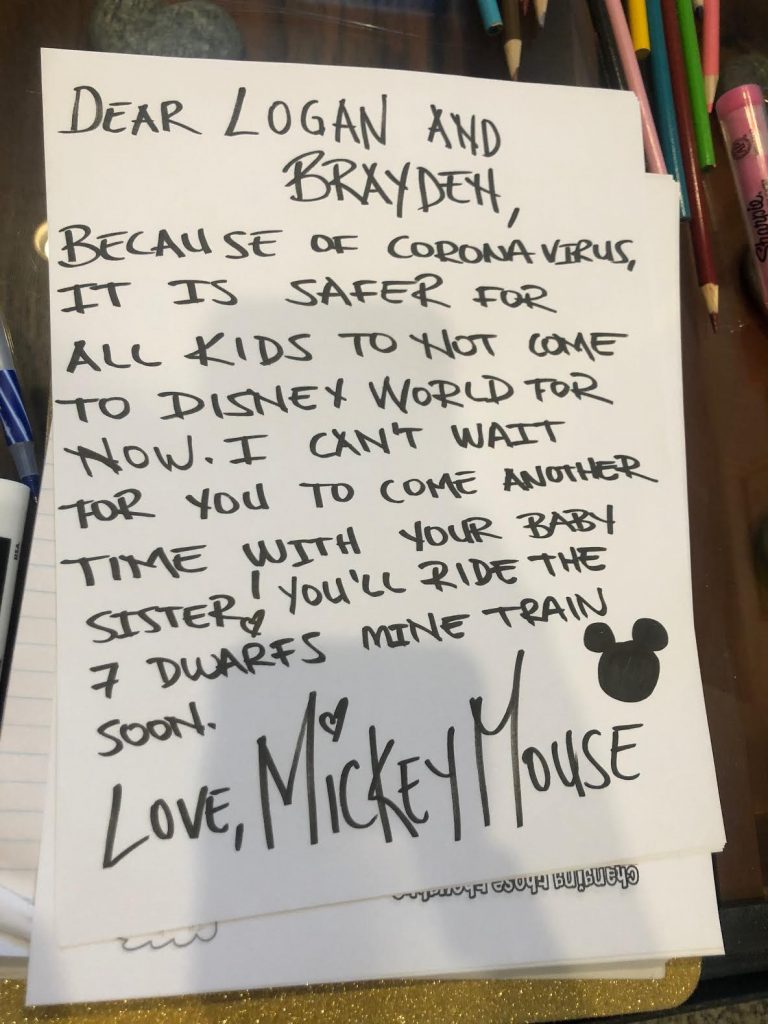 DEAR LOGAN AND
BRAYDEN,
BECAUSE OF CORONA VIRUS,
IT IS SAFER FOR
ALL KIDS TO NOT COME
TO DISNEY WORLD FOR
NOW. I CAN'T WAIT
FOR YOU TO COME ANOTHER
TIME WITH YOUR BABY
SISTER! YOU'LL RIDE THE
7 DWARFS MINE TRAIN
SOON.
LOVE, MICKEY MOUSE
Sharpie
changing those thoughts